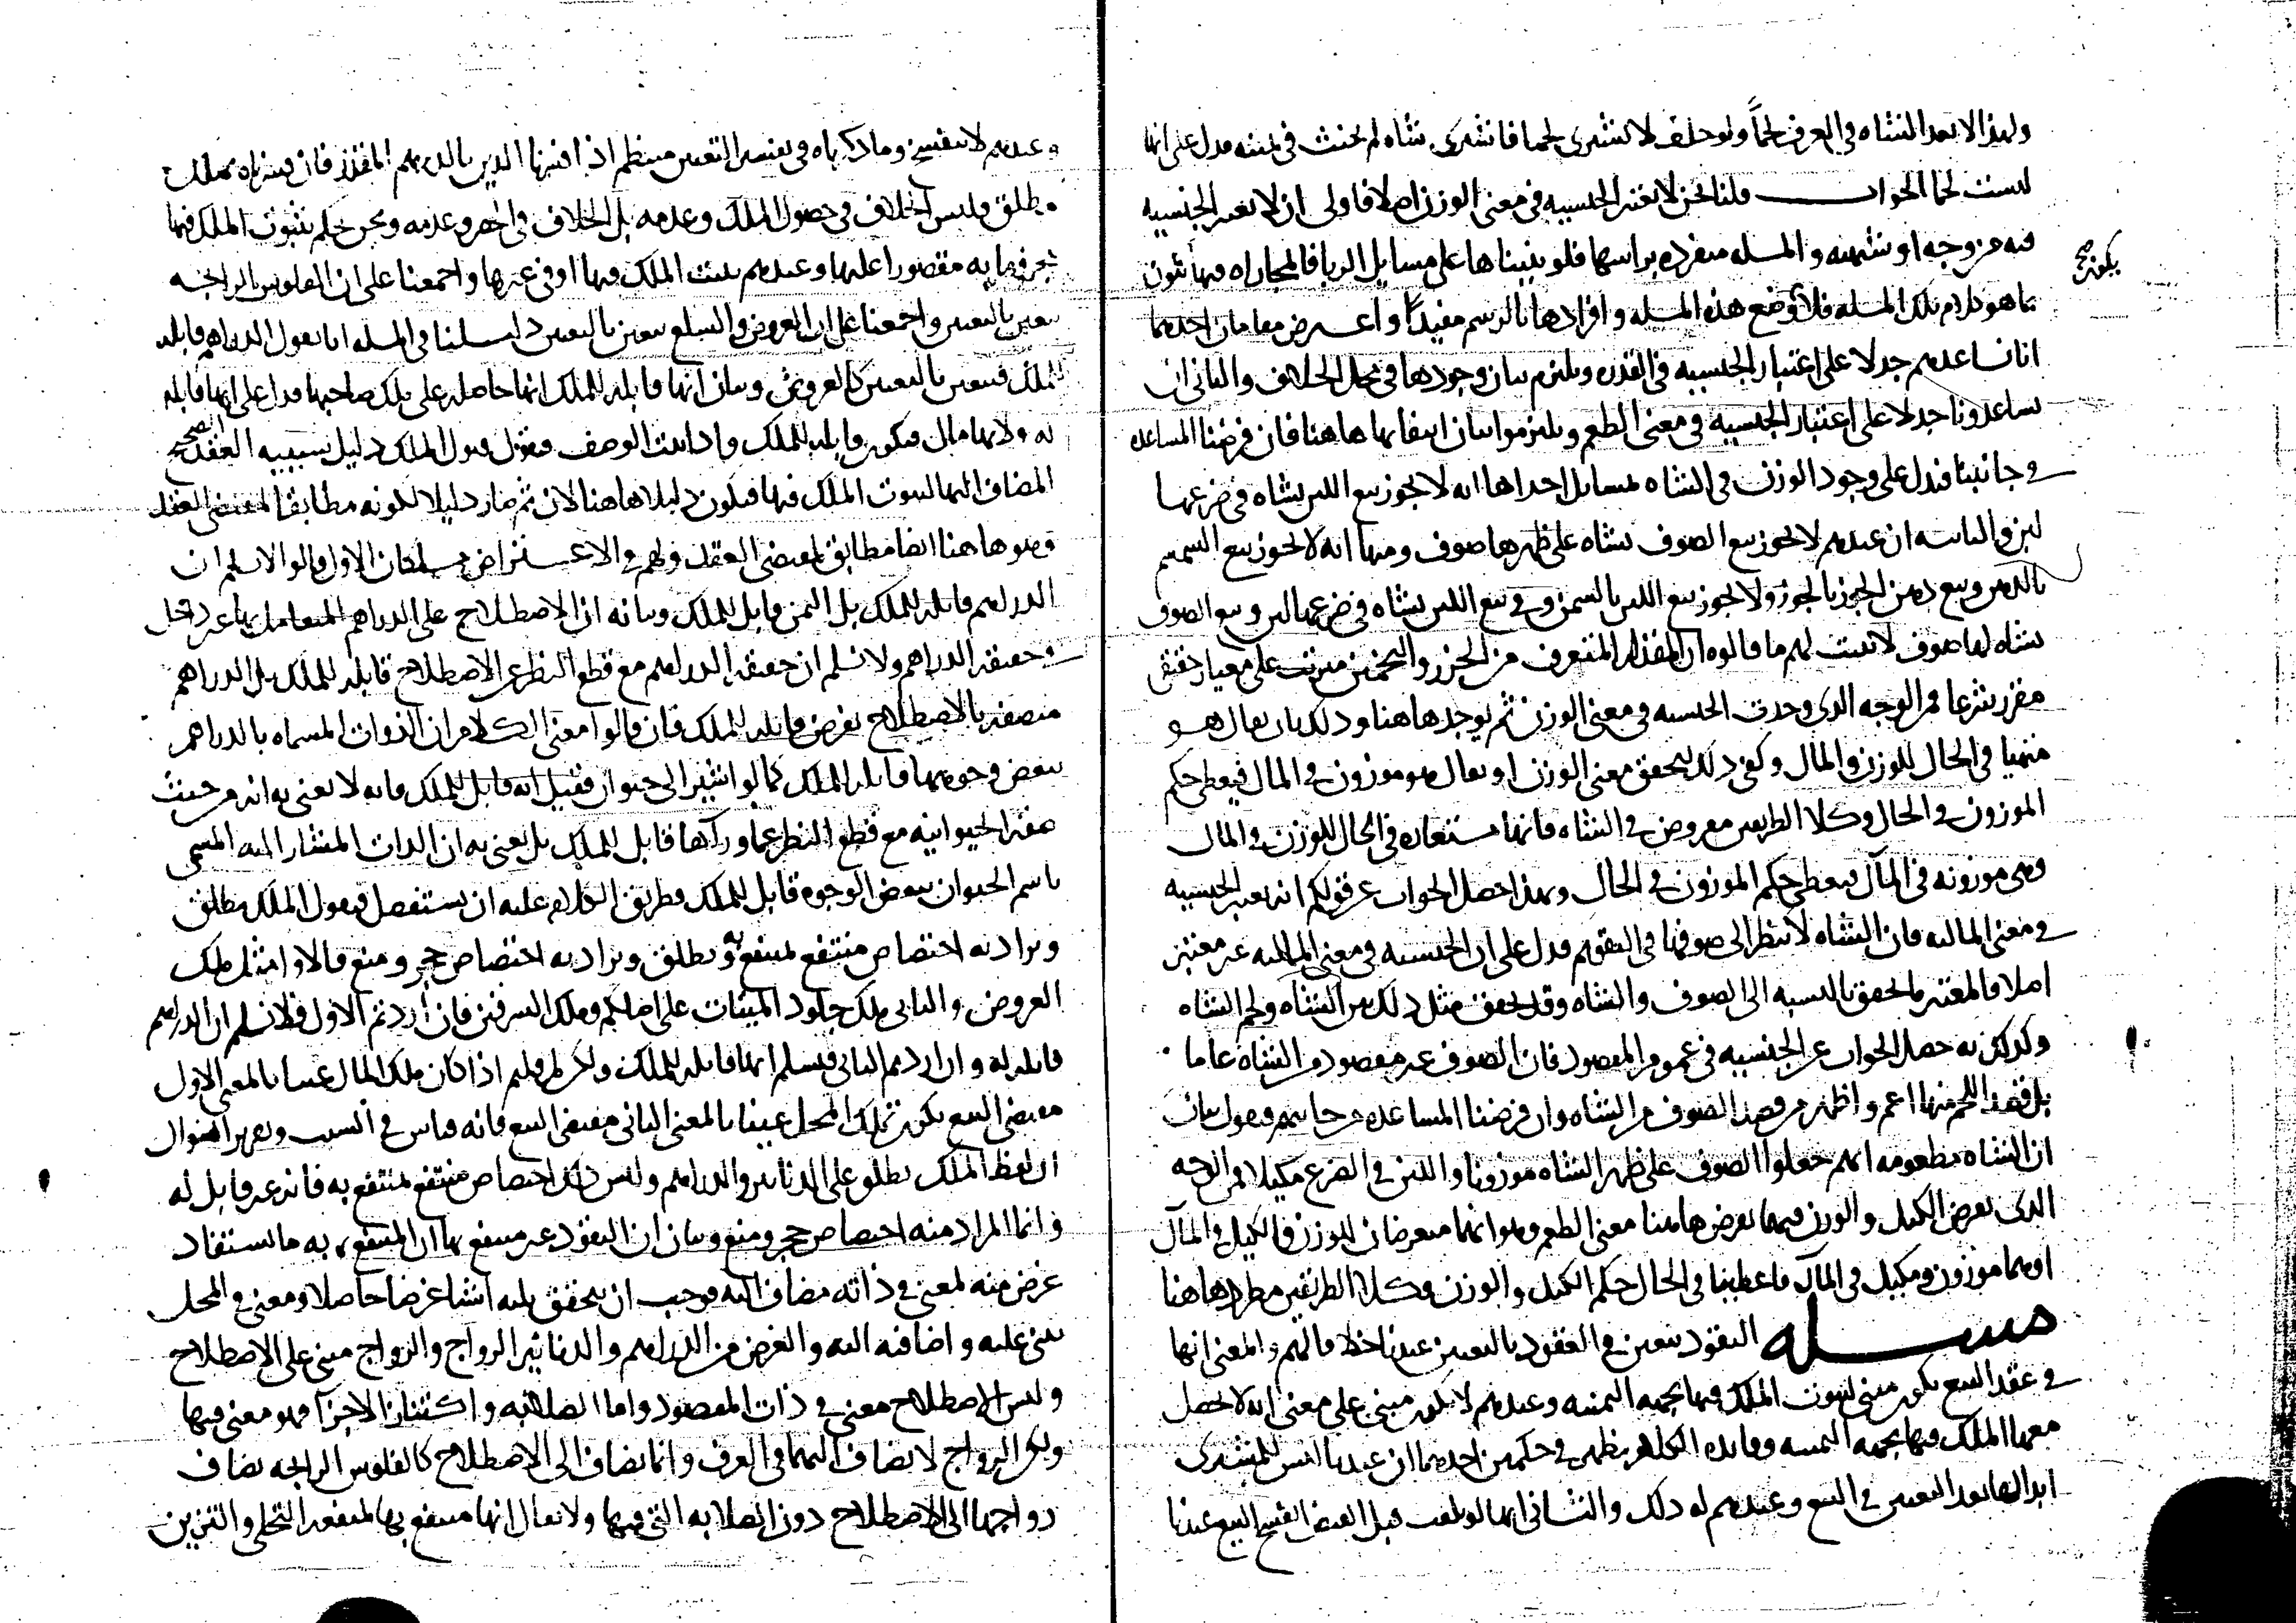 ولهذا لا تعد الشاه في العرف لحماً ولو حلف لا يشتري لحما فاشترى شاه لم يحنث في يمينه فدل على انها
ليست لحما الجواب قلنا نحن لا نعتبر الجنسيه في معنى الوزن اصلا فاولى ان لا نعتبر الجنسيه
فيه من وجه او شبهه والمسله منفرده براسها فلو بنيناها على مسايل الربا فالمجاراه فيها تكون
يكون صح
ما هو كلام تلك المسله فلا وضع هذه المسله وافرادها بالرسم مفيداً واعترض مقامان احدهما
انا نساعدهم جدلا على اعتبار الجنسيه في القدر ويلتزم بيان وجودها في محل الخلاف والثاني ان
يساعدونا جدلا على اعتبار الجنسيه في معنى الطعم ويلتزموا بيان انتفايها هاهنا فان فرضنا المساعده
في جانبنا فندل على وجود الوزن في الشاه لمسايل احداها انه لا يجوز بيع اللبن بشاه في ضرعها
لبن والثانيه ان عندهم لا يجوز بيع الصوف بشاه على ظهرها صوف ومنها انه لا يجوز بيع السمسم
بالدهن وبيع دهن الجوز بالجوز ولا يجوز بيع اللبن بالسمن وفي بيع اللبن بشاه في ضرعها لبن وبيع الصوف
بشاه لها صوف لا يثبت لهم ما قالوه ان المقدار المتعرف من الحزر والتخمين مترتب على معيار حقيقي
مقرر شرعا فمن الوجه الذي وجدت الجنسيه في معنى الوزن ثم يوجد هاهنا وذلك بان يقال هو
متهيا في الحال للوزن في المال وكفى ذلك لتحقق معنى الوزن او يقال هو موزون في المال فيعطى حكم
الموزون في الحال وكلا الطريقين معروض في الشاه فانها مستعده في الحال للوزن في المال
وهي موزونه في المآل فيعطى حكم الموزون في الحال وبهذا حصل الجواب عن قولكم انه يعتبر الجنسيه
في معنى الماليه فان الشاه لا ينظر الى صوفها في التقويم فدل على ان الجنسيه في معنى الماليه غير معتبر
اصلا فالمعتبر ما لحقق بالنسبه الى الصوف والشاه وقد تحقق مثل ذلك بين الشاه ولحم الشاه
وكذلك به حصل الجواب عن الجنسيه في عموم المقصود فان الصوف غير مقصود من الشاه عاما
بل قصد اللحم منها اعم واظهر من قصد الصوف من الشاه وان فرضنا المساعده من جانبهم فيقول بيان
ان الشاه مطعومه انهم جعلوا الصوف على ظهر الشاه موزونا واللبن في الضرع مكيلا فمن الوجه
الذي يعرض الكيل والوزن فيهما يعرض هاهنا معنى الطعم وهو انهما معرضان للوزن والكيل في المآل
او هما موزون ومكيل في المآل فاعطينا في الحال حكم الكيل والوزن وكلا الطريقين مطرد هاهنا
مسله النقود تتعين في العقود بالتعيين عندنا خلافا لهم والمعنى انها
في عقد البيع يكون مبنى لثبوت الملك فيها بجهه الثمنيه وعندهم لا يكون مبنى على معنى انه لا يحصل
معها الملك فيها بجهه الثمنيه وفايده الكلام يظهر في حكمين احدهما ان عندنا ليس للمشتري
ابدالها بعد التعيين في البيع وعندهم له ذلك والثاني انها لو تلفت قبل القبض انفسخ البيع عندنا
وعندهم لا ينفسخ وما ذكرناه في تفسير التعيين ينظم اذا
يطلق وليس الخلاف في حصول الملك وعدمه بل الخلاف في الحجر وعدمه ونحن نحكم بثبوت الملك فيها
مقصورا عليها وعندهم يثبت الملك فيها او في غيرها واجمعنا على ان الفلوس الرايجه
تتعين بالتعيين واجمعنا على ان العروض والسلع تتعين بالتعيين دليلنا في المسله انا نقول الدراهم قابله
للملك فتتعين بالتعيين كالعروض وبيان انها قابله للملك انها حاصله على ملك صاحبها فدل على انها قابله
له ولانها مال فيكون قابله للملك واذا ثبت الوصف فنقول قبول الملك دليل سببيه العقد الصحيح
المضاف اليها لثبوت الملك فيها فيكون دليلا هاهنا لان ثم صار دليلا لكونه مطابقا لمقتضى العقد
وهو هاهنا ايضا مطابق لمقتضى العقد ولهم في الاعتراض مسلكان الاول قالوا لا نسلم ان
الدراهم قابله للملك بل الثمن قابل للملك وبيانه ان الاصطلاح على الدراهم المتعامل بها غير داخل
في حقيقه الدراهم ولا نسلم ان حقيقه الدراهم مع قطع النظر عن الاصطلاح قابله للملك بل الدراهم
متصفه بالاصطلاح يفرض قابله للملك فان قالوا معنى الكلام ان الذوات المسماه بالدراهم
ببعض وجوهها قابله للملك كما لو اشير الى حيوان فقيل انه قابل للملك فانه لا يعنى به انه من حيث
صفه الحيوانيه مع قطع النظر عما وراها قابل للملك بل يعنى به ان الذات المشار اليه المسمى
باسم الحيوان ببعض الوجوه قابل للملك وطريق الكلام عليه ان يستفصل فيقول الملك يطلق
ويراد به اختصاص منتفع بمنتفع به ويطلق ويراد به اختصاص حجر ومنع فالاول مثل ملك
العروض والثاني ملك جلود الميتات على اصلكم وملك السرقين فان اردتم الاول فلا نسلم ان الدراهم
قابله له وان اردتم الثاني فنسلم انها قابله للملك ولكن لم قلتم اذا كان ملك المال عينا بالمعنى الاول
مقتضى البيع يكون تملك المحل عينا بالمعنى الثاني مقتضى البيع فانه قياس في السبب
ان لفظ الملك يطلق على الدنانير والدراهم وليس ذلك اختصاص منتفع بمنتفع به فانه غير قابل له
وانما المراد منه اختصاص حجر ومنع وبيان ان النقود غير منتفع بها ان المنتفع به ما يستفاد
غرض منه لمعنى في ذاته مضاف اليه فوجب ان يتحقق ثلثه اشيا غرضا حاصلا ومعنى في المحل
يبنى عليه واضافه اليه والغرض من الدراهم والدنانير الرواج والرواج مبنى على الاصطلاح
وليس الاصطلاح معنى في ذات المقصود واما الصلابه واكتناز الاجزا فهو معنى فيها
ولكن الرواج لا يضاف اليهما في العرف وانما يضاف الى الاصطلاح كالفلوس الرايجه يضاف
رواجها الى الاصطلاح دون الصلابه التي فيها ولا يقال انها منتفع بها لمنفعه التحلي والتزين